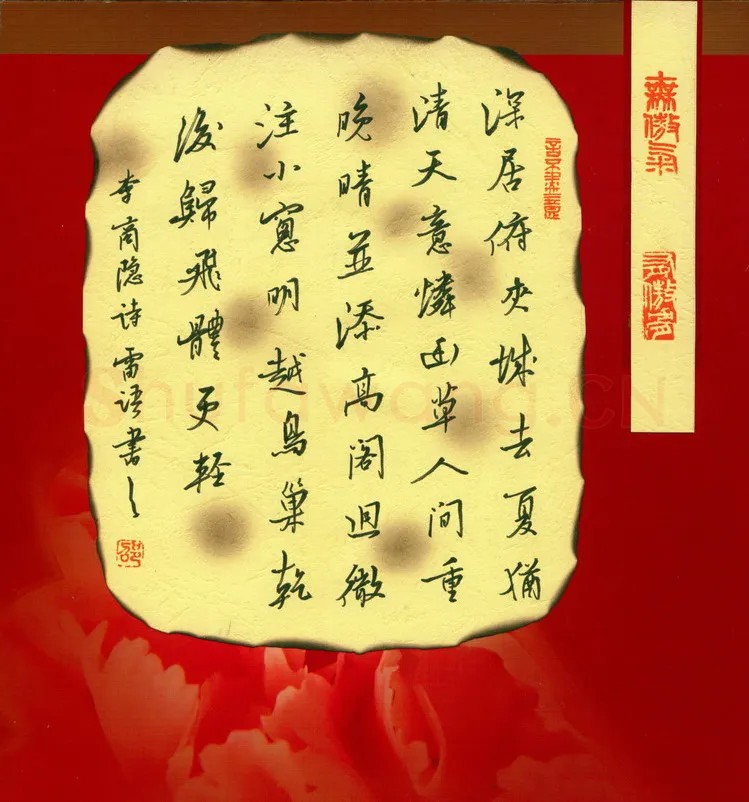 無傲氣
深居俯夾城去夏猶
清天意憐幽草人间重
晚晴並添高阁迥微
注小窻明越鳥巢乾
後歸飛體更軽
李商隐诗雷语書之
Shufawang.CN